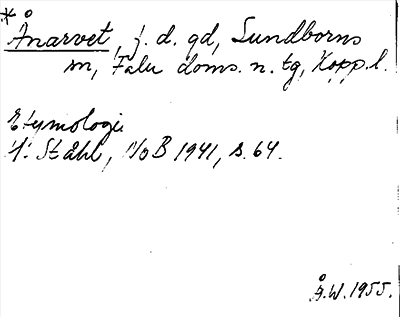 * Ånarvet, f. d. gd, Sundborns
sn, Falu doms. n. tg, Kopp. l.
Etymologi
H. Ståhl, NoB 1941, s. 64.
Å.W. 1955.